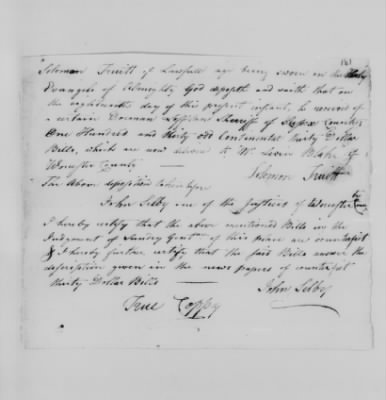 161
Solomon Truitt of Lawfull age being sworn on the Holy
Evangels of Almighty God deposeth and saith that on
the eighteenth day of this present instant, he received of
a certain Dorman Lofland Sherriff of Sussex County
One Hundred and thirty odd Continental thirty Dollar
Bills, which are now to Mr Levin Blake of
Worcester County —
Solomon Truitt
The Above deposition taken before
John Selby one of the Justices of Worcester County
I hereby certify that the above mentioned Bills in the
Judgment of Sundry Gentn of this place are counterfit
& I hereby further certify that the said Bills answer the
description given in the news papers of counterfit
thirty Dollar Bills —
John Selby
True Coppy